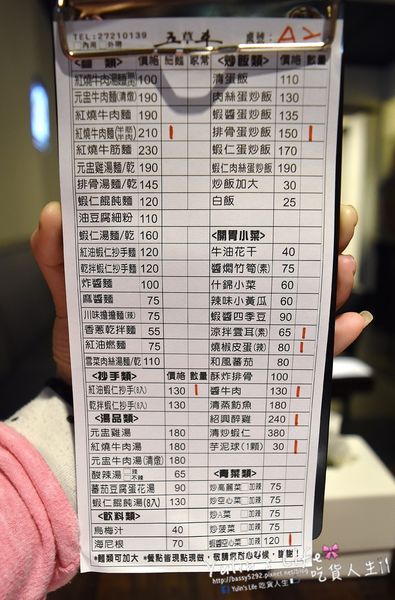 TEL:27210139
□內用 □外帶
桌號: A2
<麵 類> 價格 細麵 家常
紅燒牛肉湯麵 100
元盅牛肉麵(清燉) 190
紅燒牛肉麵 190
紅燒牛肉麵(半筋半肉) 210
紅燒牛筋麵 230
元盅雞湯麵/乾 190
排骨湯麵/乾 145
蝦仁餛飩麵 120
油豆腐細粉 110
蝦仁湯麵/乾 160
紅油蝦仁抄手麵 120
乾拌蝦仁抄手麵 120
炸醬麵 100
麻醬麵 75
川味擔擔麵(辣) 75
香蔥乾拌麵 55
紅油燃麵 75
雪菜肉絲湯麵/乾 110
<抄手類> 價格 數量
紅油蝦仁抄手(8入) 130
乾拌蝦仁抄手(8入) 130
<湯品類>
元盅雞湯 180
紅燒牛肉湯 180
元盅牛肉湯(清燉) 180
酸辣湯 □辣 □不辣 65
蕃茄豆腐蛋花湯 90
蝦仁餛飩湯(8入) 90
<飲料類>
烏梅汁 40
海尼根 70
<炒飯類> 價格 數量
清蛋飯 110
肉絲蛋炒飯 130
蝦醬蛋炒飯 135
排骨蛋炒飯 150
蝦仁蛋炒飯 170
蝦仁肉絲蛋炒飯 190
炒飯加大 30
白飯 25
<開胃小菜>
牛油花干 40
醬燜竹筍(素) 75
什錦小菜 60
辣味小黃瓜 60
蝦醬四季豆 90
涼拌雲耳(素) 65
燒椒皮蛋(辣) 80
和風蕃茄 80
酥炸排骨 100
醬牛肉 130
清蒸魴魚 180
紹興醉雞 240
清炒蝦仁 380
芋泥球(1顆) 30
<青菜類>
炒高麗菜□加辣 75
炒空心菜□加辣 75
炒A菜 □加辣 75
炒菠菜 □加辣 75
蝦醬空心菜□加辣 120
*麵類可加大 *餐點皆現點現做,敬請您耐心等候,謝謝!
Yulin's Life
http://bassy5292.pixnet.net/blog
Yulin's Life 吃貨人生
吃貨人生!!